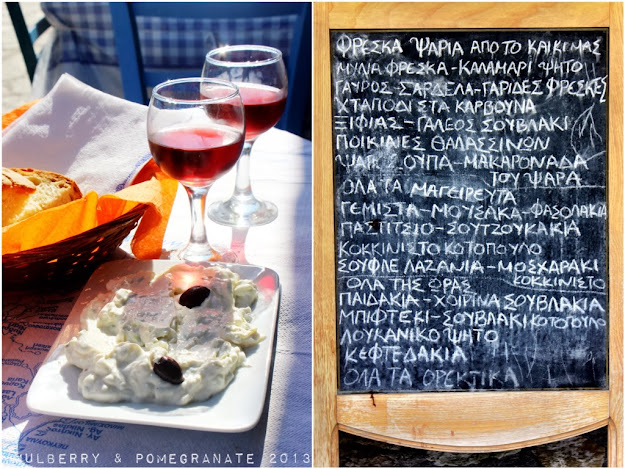 ΦΡΕΣΚΑ ΨΑΡΙΑ ΑΠΟ ΤΟ ΚΑΙΚΙ ΜΑΣ
ΜΥΔΙΑ ΦΡΕΣΚΑ-ΚΑΛΑΜΑΡΙ ΨΗΤΟ
ΓΑΥΡΟΣ-ΣΑΡΔΕΛΑ-ΓΑΡΙΔΕΣ ΦΡΕΣΚΕΣ
ΧΤΑΠΟΔΙ ΣΤΑ ΚΑΡΒΟΥΝΑ
ΞΙΦΙΑΣ-ΓΑΛΕΟΣ ΣΟΥΒΛΑΚΙ
ΠΟΙΚΙΛΙΕΣ ΘΑΛΑΣΣΙΝΩΝ
ΨΑΡΟΣΟΥΠΑ-ΜΑΚΑΡΟΝΑΔΑ
ΤΟΥ ΨΑΡΑ
ΟΛΑ ΤΑ ΜΑΓΕΙΡΕΥΤΑ
ΓΕΜΙΣΤΑ-ΜΟΥΣΑΚΑ-ΦΑΣΟΛΑΚΙΑ
ΠΑΣΤΙΤΣΙΟ-ΣΟΥΤΖΟΥΚΑΚΙΑ
ΚΟΚΚΙΝΙΣΤΟ ΚΟΤΟΠΟΥΛΟ
ΣΟΥΦΛΕ ΛΑΖΑΝΙΑ-ΜΟΣΧΑΡΑΚΙ
ΚΟΚΚΙΝΙΣΤΟ
ΟΛΑ ΤΗΣ ΩΡΑΣ
ΠΑΙΔΑΚΙΑ-ΧΟΙΡΙΝΑ ΣΟΥΒΛΑΚΙΑ
ΜΠΙΦΤΕΚΙ-ΣΟΥΒΛΑΚΙ ΚΟΤΟΠΟΥΛΟ
ΛΟΥΚΑΝΙΚΟ ΨΗΤΟ
ΚΕΦΤΕΔΑΚΙΑ
ΟΛΑ ΤΑ ΟΡΕΚΤΙΚΑ
MULBERRY & POMEGRANATE 2013